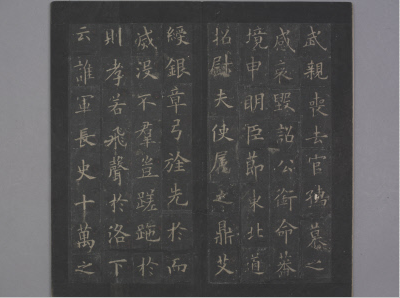 武親喪去官孺慕之
感哀毀詔公銜命
境申明臣節水北道
招慰夫使屬之鼎艾
綬銀章弓旌光於而
威沒不羣豈蹉跎於
則孝若飛聲於洛下
云誰軍長史十萬之